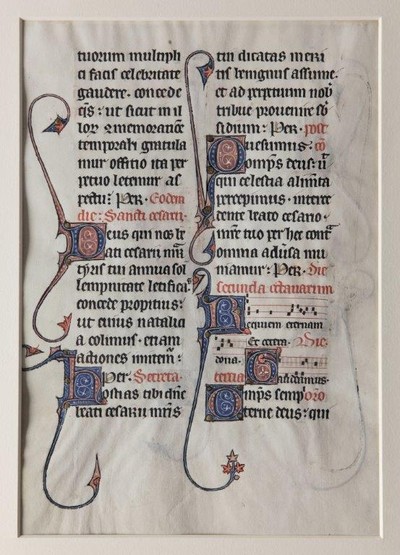 tuorum multipli
ci facis celebritate
gaudere. concede
q̄s: ut sicut in il
lor
temporali gratula
mur officio ita per
petuo letemur as
pectu: Per. Eodem
die: Sancti cesarii.
Deus qui nos be
ati cesarii m̄ris
tui annua sol
lempnitate letificas
concede propitius:
ut cuius natalicia
colimus. etiam
actiones imitem̄:
Per. Secreta.
Hostias tibi dn̄e
beati cesarii m̄ris
tui dicatas meri
tis benignus assume.
et ad perpetuum nob̄
tribue prouenire sb̄
sidium: Per. post
Quesumus. cō
omp̄s deus: ut
qui celestia alim̄ta
percepimus. interce
dente beato cesario.
m̄re tuo per hec cont̄
omnia aduersa mu
niamur: Per. Die
secunda octauarum
Requiem eternam
Et cetera. Die
dona.
tercia Gaudeamus.
Omp̄s semp̄ oro
iterne deus: qui